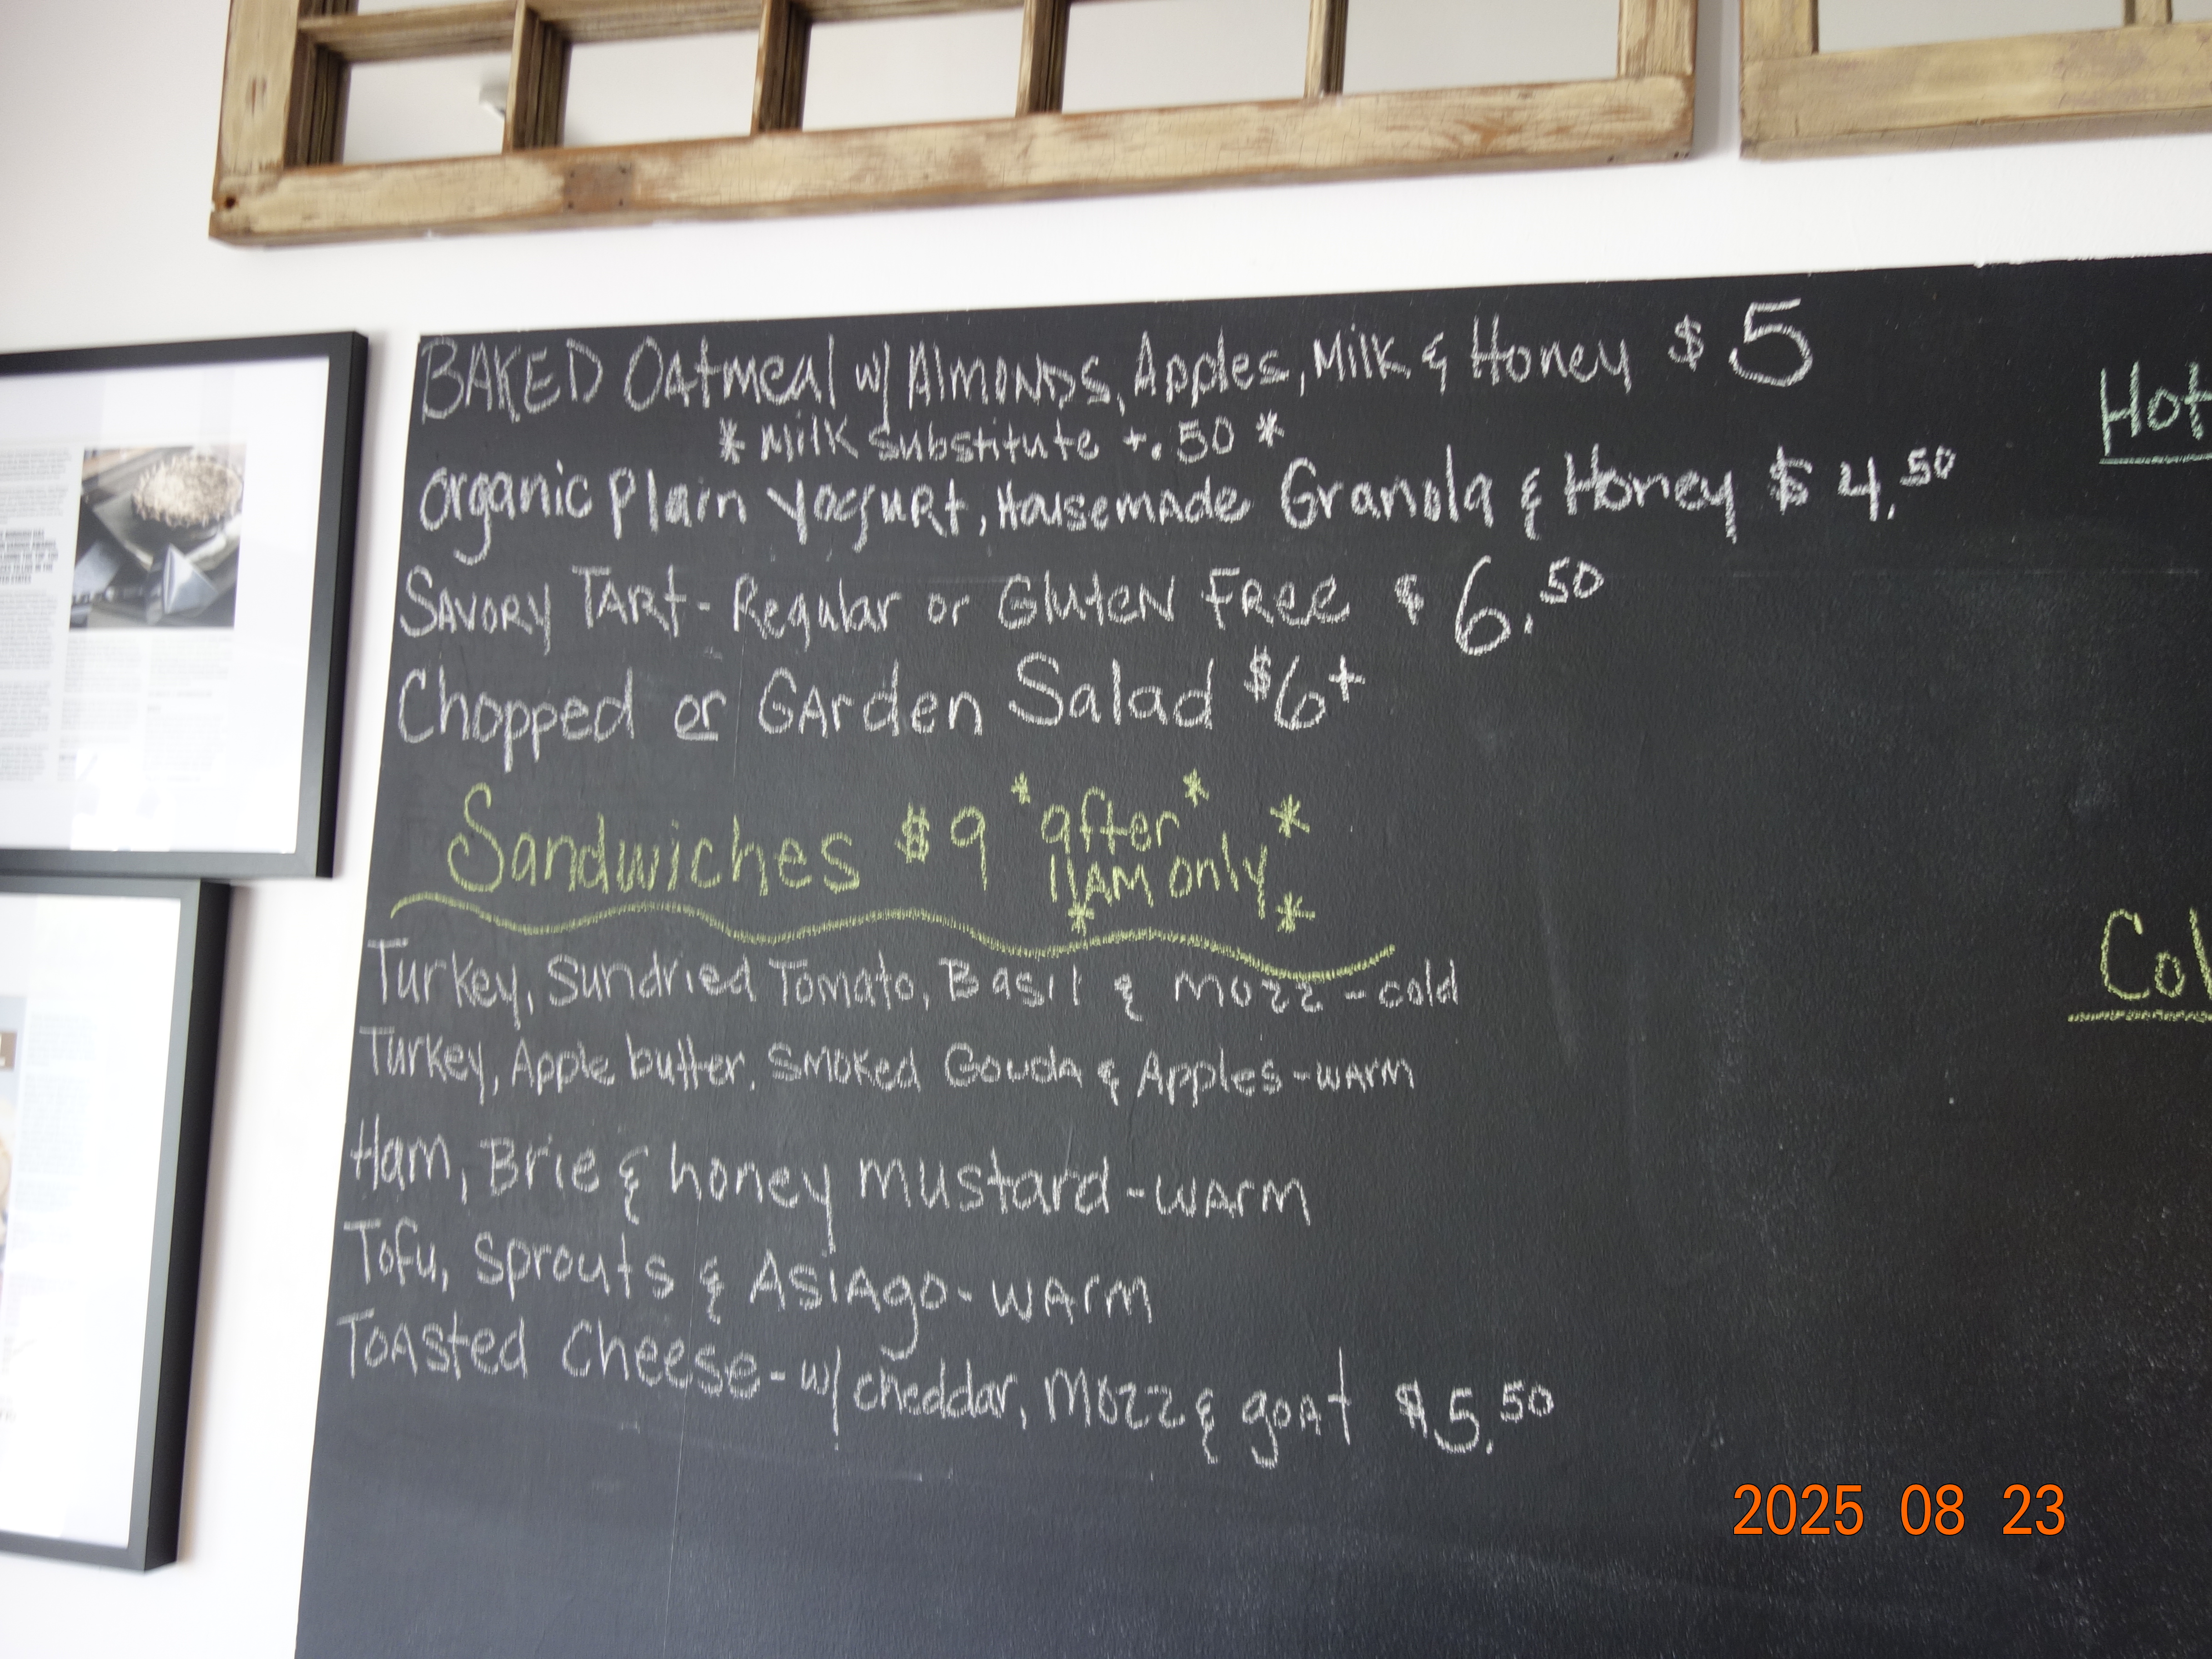 BAKED Oatmeal w/ Almonds, Apples, Milk & Honey $5
* Milk substitute +.50 *
Organic Plain Yogurt, Housemade Granola & Honey $4.50
Savory Tart - Regular or Gluten Free $6.50
Chopped or Garden Salad $6+
Sandwiches $9 *after*
11AM only*
Turkey, Sundried Tomato, Basil & Mozz - cold
Turkey, Apple butter, Smoked Gouda & Apples - warm
Ham, Brie & honey mustard - warm
Tofu, Sprouts & Asiago - warm
Toasted Cheese - w/ cheddar, Mozz & goat $5.50
Hot
2025 08 23